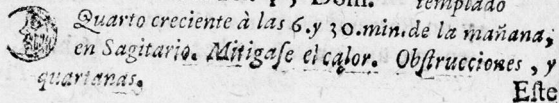 Dom. templado
Quarto creciente à las 6. y 30. min. de la mañana,
en Sagitario. Mitigase el calor. Obstrucciones, y
quartanas.
Este